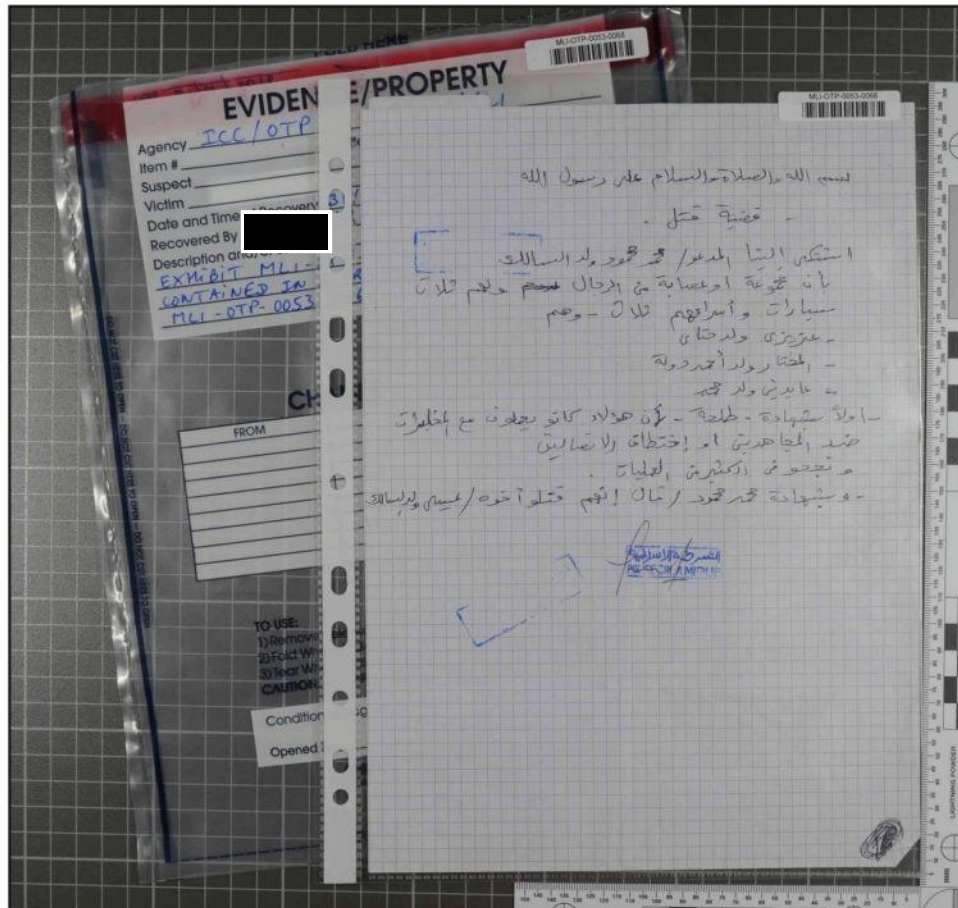 MLI-OTP-0053-0068
EVIDENCE/PROPERTY
Agency ICC/OTP
Item #
Suspect
Victim
Date and Time of Recovery
Recovered By
Description and/or
EXHIBIT MLI-
CONTAINED IN
MLI-OTP-0053
FROM
TO USE:
1) Remove
2) Fold
3) Tear
CAUTION
Condition
Opened
MLI-OTP-0053-0066
بسم الله والصلاة والسلام على رسول الله
- قضية قتل .
اشتكى إلينا المدعو / محمد محمود ولد السالك
بأن مجموعة أو عصابة من الرجال ولهم ثلاث
سيارات وأسماؤهم ثلاث - وهم
- عزيزي ولد حتاي
- المختار ولد أحمد دولة
- عابدين ولد محمد
- أولا شهادة - طلحة - لأن هؤلاء كانو يعملون مع المخابرات
ضد المجاهدين أو إختطاف الإيطاليين
و نجحو في الكثير من العمليات .
- وشهادة محمد محمود / قال إنهم قتلو آخوه / عيسى ولد السالك
الشرطة الإسلامية
POLICE ISLAMIQUE
LIGHTNING POWDER